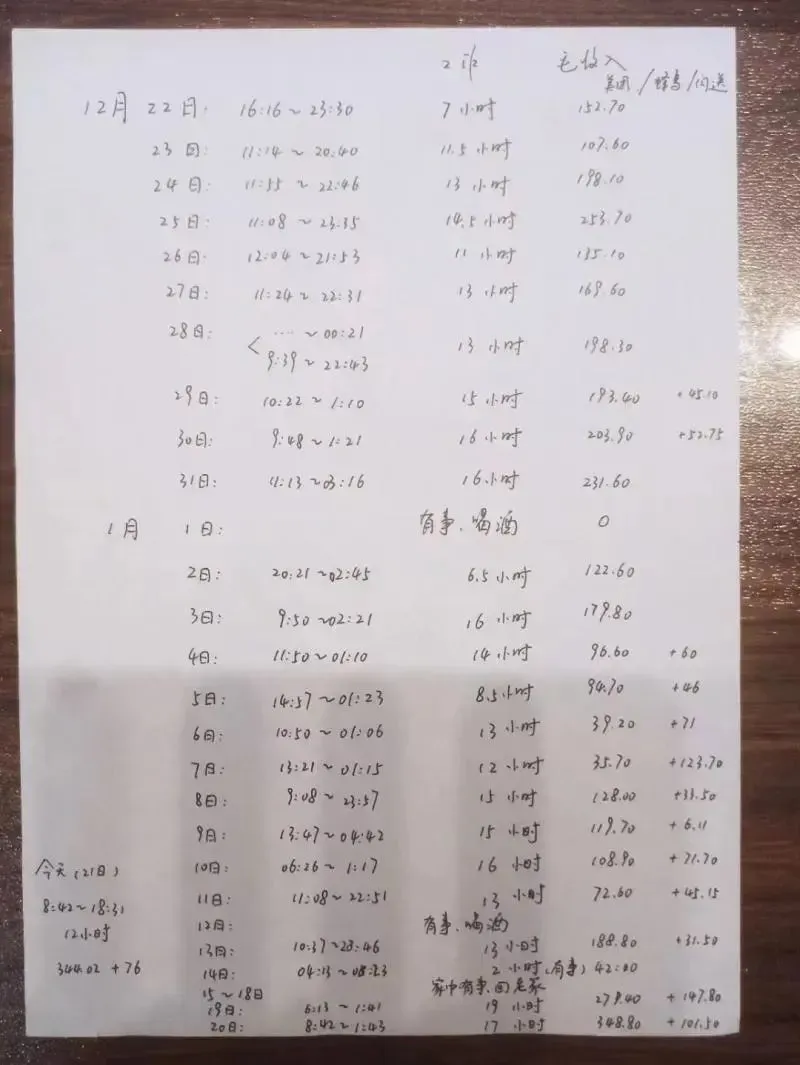 工作 毛收入
美团/蜂鸟/闪送
12月 22日: 16:16~23:30 7小时 152.70
23日: 11:14~20:40 11.5小时 107.60
24日: 11:55~22:46 13小时 198.10
25日: 11:08~23:35 14.5小时 253.70
26日: 12:04~21:53 11小时 135.10
27日: 11:24~22:31 13小时 169.60
28日: ....~00:21 13小时 198.30
9:39~22:43
29日: 10:22~1:10 15小时 193.40 +45.10
30日: 9:48~1:21 16小时 203.90 +52.75
31日: 11:13~03:16 16小时 231.60
1月 1日: 有事、喝酒 0
2日: 20:21~02:45 6.5小时 122.60
3日: 9:50~02:21 16小时 179.80
4日: 11:50~01:10 14小时 96.60 +60
5日: 14:57~01:23 8.5小时 94.70 +46
6日: 10:50~01:06 13小时 39.20 +71
7日: 13:21~01:15 12小时 35.70 +123.70
8日: 9:08~23:57 15小时 128.00 +33.50
9日: 13:47~04:42 15小时 119.70 +6.11
10日: 06:26~1:17 16小时 108.90 +71.70
11日: 11:08~22:51 13小时 72.60 +45.15
12日: 有事、喝酒
13日: 10:37~23:46 13小时 188.80 +31.50
14日: 04:13~08:23 2小时(有事) 42.00
15~18日 家中有事、回老家
19日: 6:13~1:41 19小时 279.40 +147.80
20日: 8:42~1:43 17小时 348.80 +101.50
今天(21日)
8:42~18:31
12小时
344.02 +76